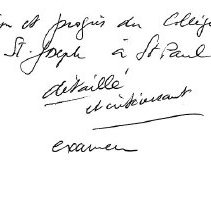 on et progrès du Collég
St. Joseph à St Paul
détaillé
et intéressant
examen